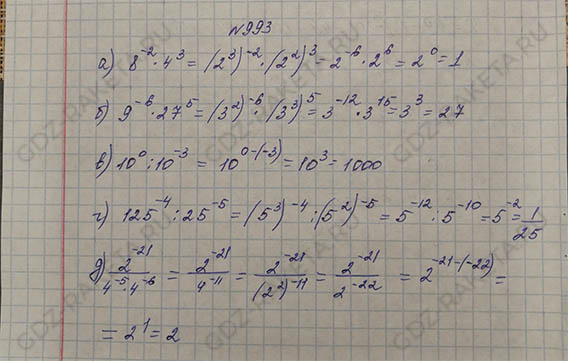 №993
а) 8⁻² · 4³ = (2³)⁻² · (2²)³ = 2⁻⁶ · 2⁶ = 2⁰ = 1
б) 9⁻⁶ · 27⁵ = (3²)⁻⁶ · (3³)⁵ = 3⁻¹² · 3¹⁵ = 3³ = 27
в) 10⁰ : 10⁻³ = 10⁰⁻⁽⁻³⁾ = 10³ = 1000
г) 125⁻⁴ : 25⁻⁵ = (5³)⁻⁴ : (5²)⁻⁵ = 5⁻¹² : 5⁻¹⁰ = 5⁻² = 1/25
д) 2⁻²¹/4⁻⁵·4⁻⁶ = 2⁻²¹/4⁻¹¹ = 2⁻²¹/(2²)⁻¹¹ = 2⁻²¹/2⁻²² = 2⁻²¹⁻⁽⁻²²⁾ =
= 2¹ = 2
GDZ-RAKETA.RU